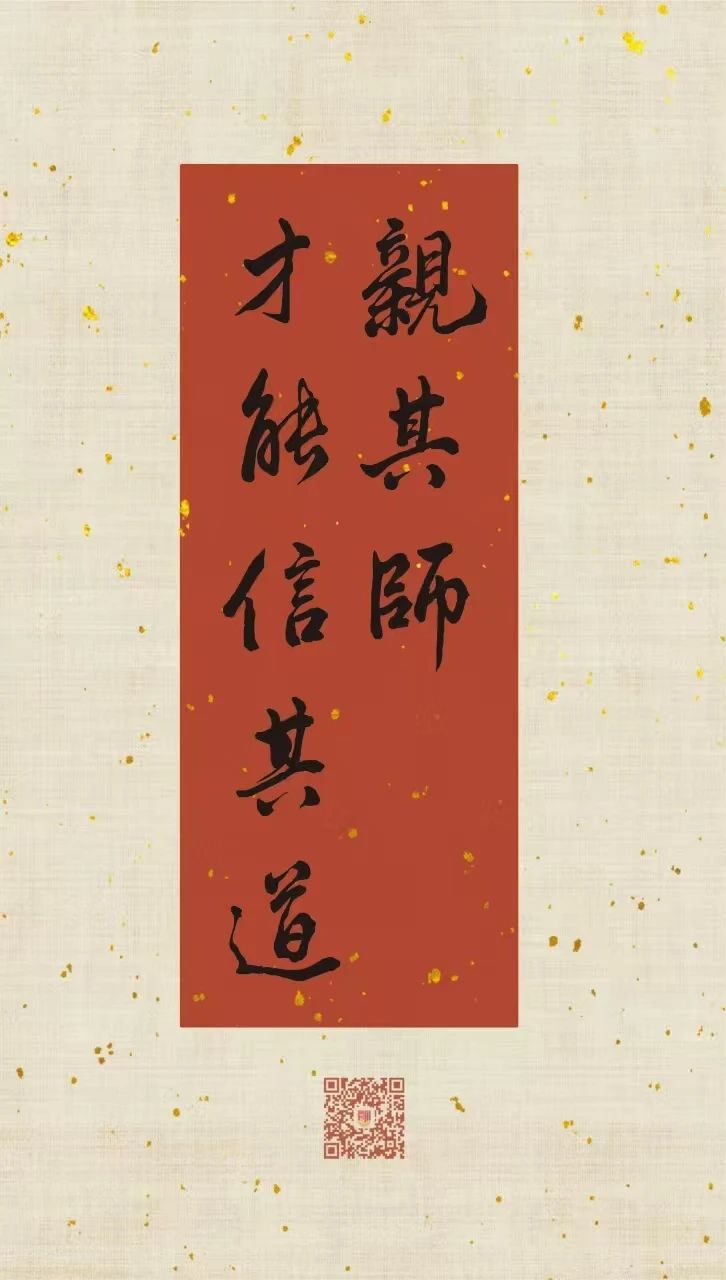 親其師
才能信其道